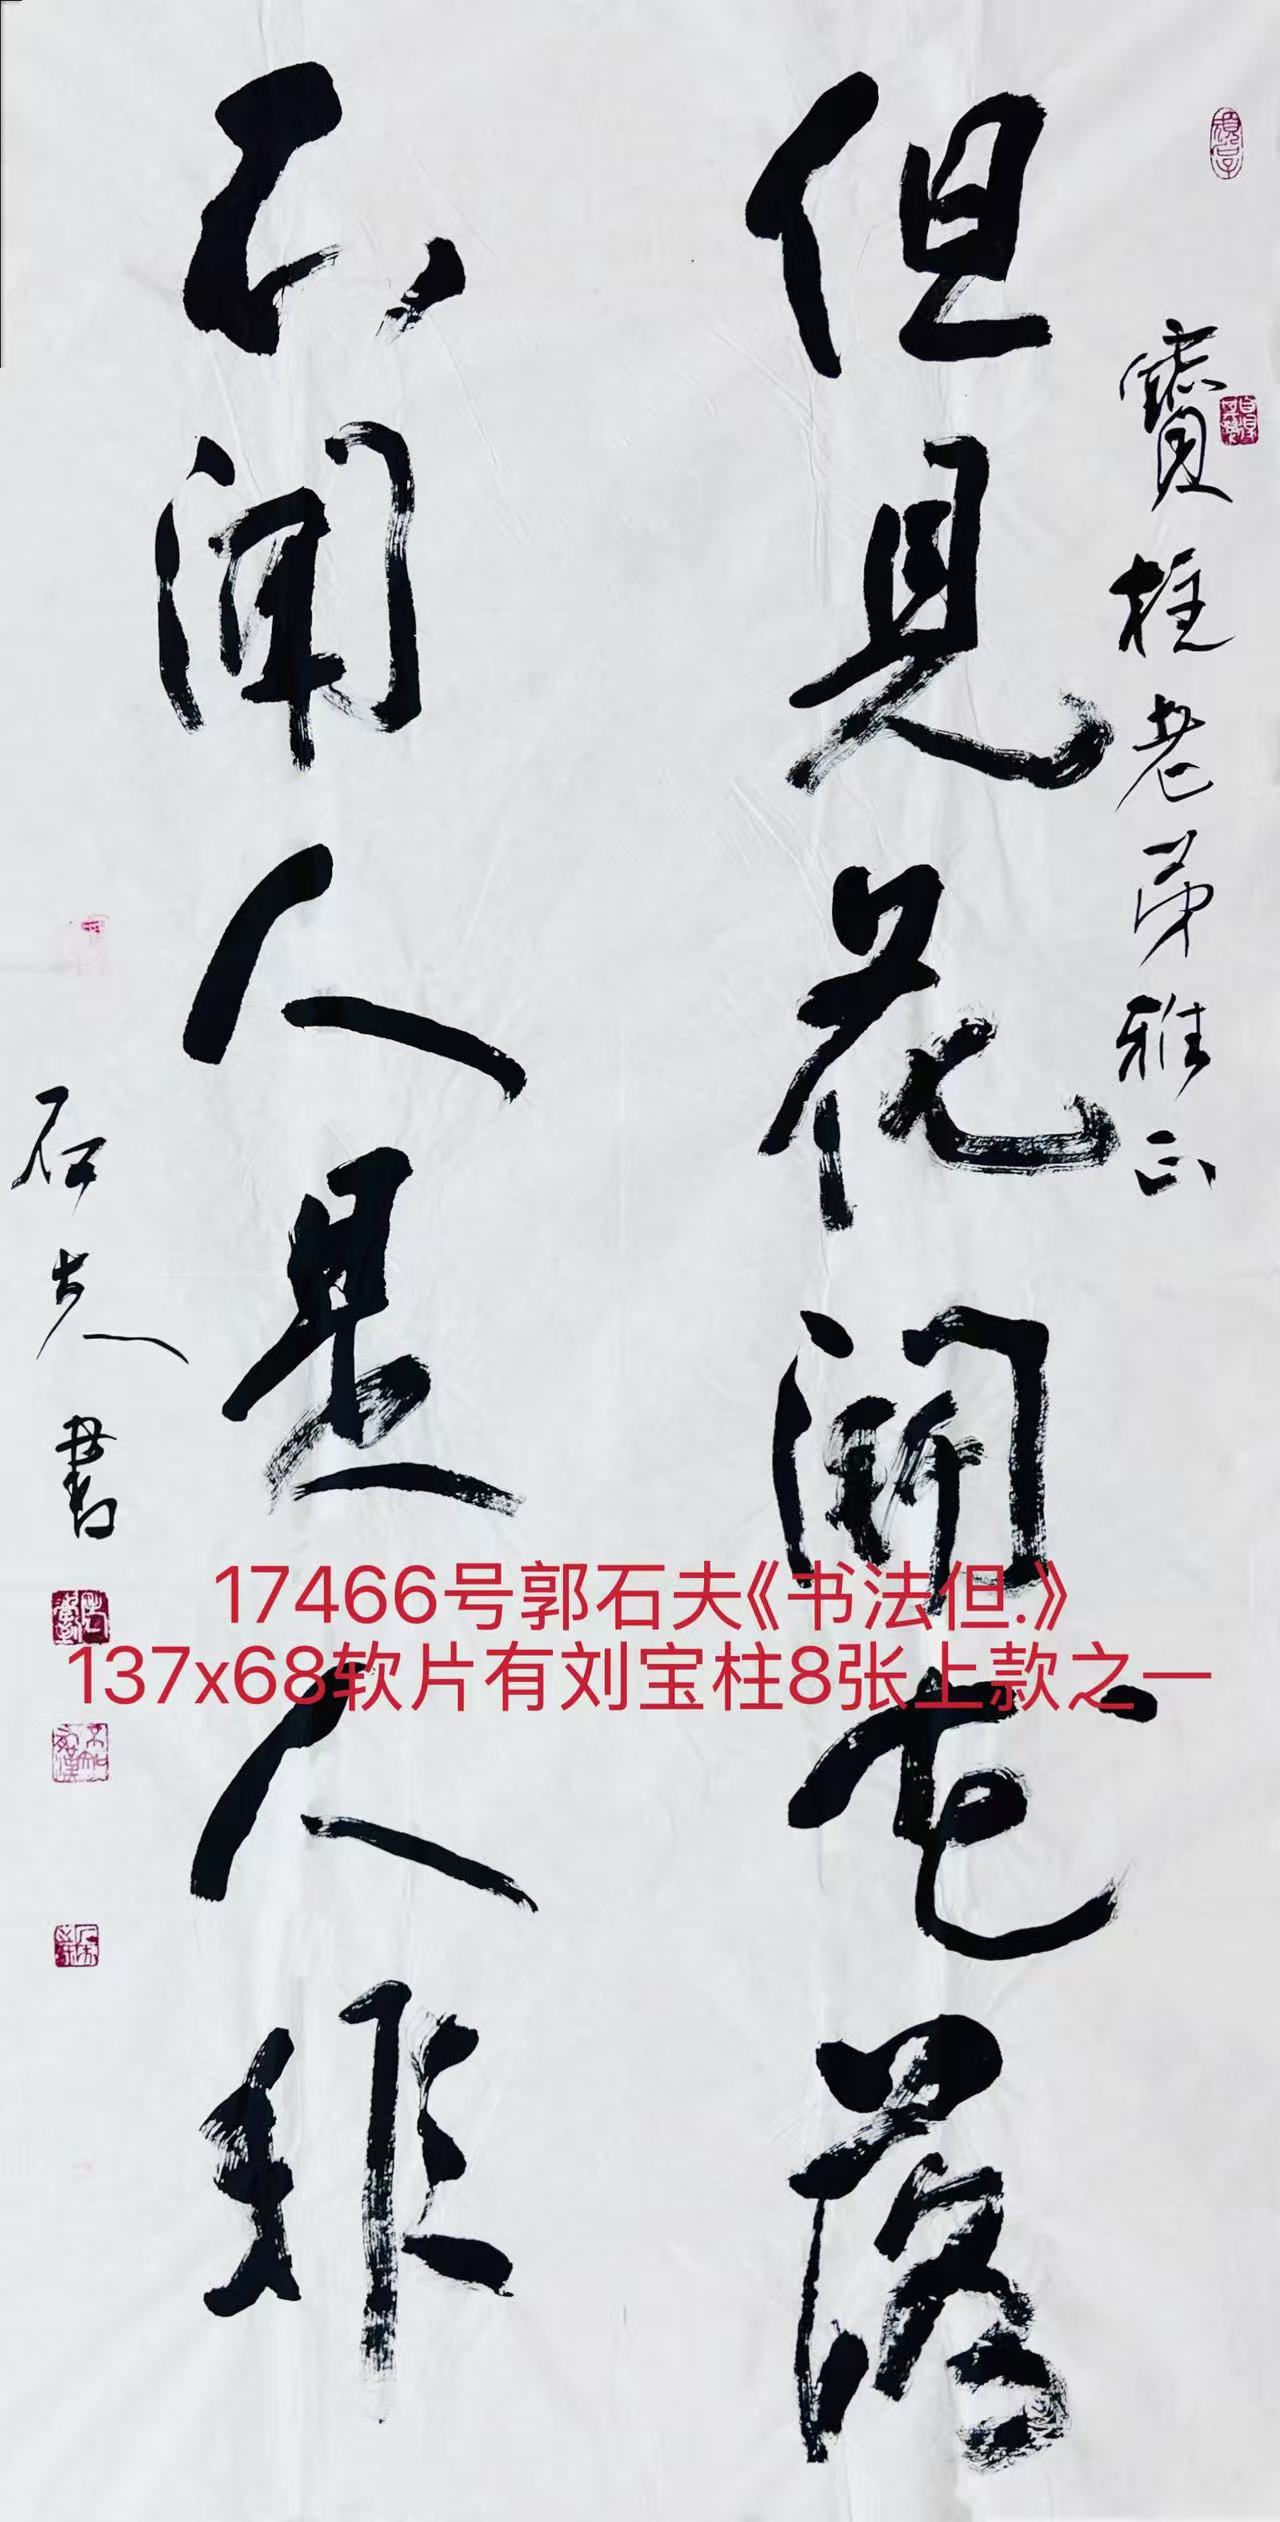 寶柱老弟雅正
但見花開花落
不聞人是人非
石夫書
17466号郭石夫《书法但.》
137x68软片有刘宝柱8张上款之一